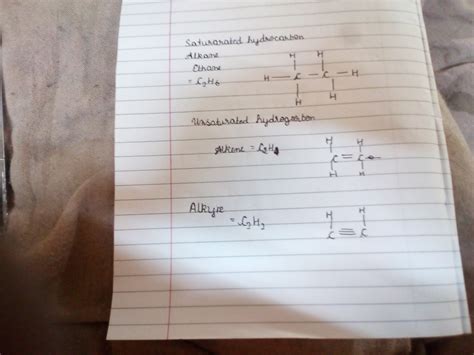 Saturarated hydrocarbon
Alkane
Ethane
= C2H6
H H
H — C — C — H
H H
Unsaturated hydrogcarbon
Alkene = C2H
H H
C = C
H H
Alkyne
= C2H2
H H
C ≡ C